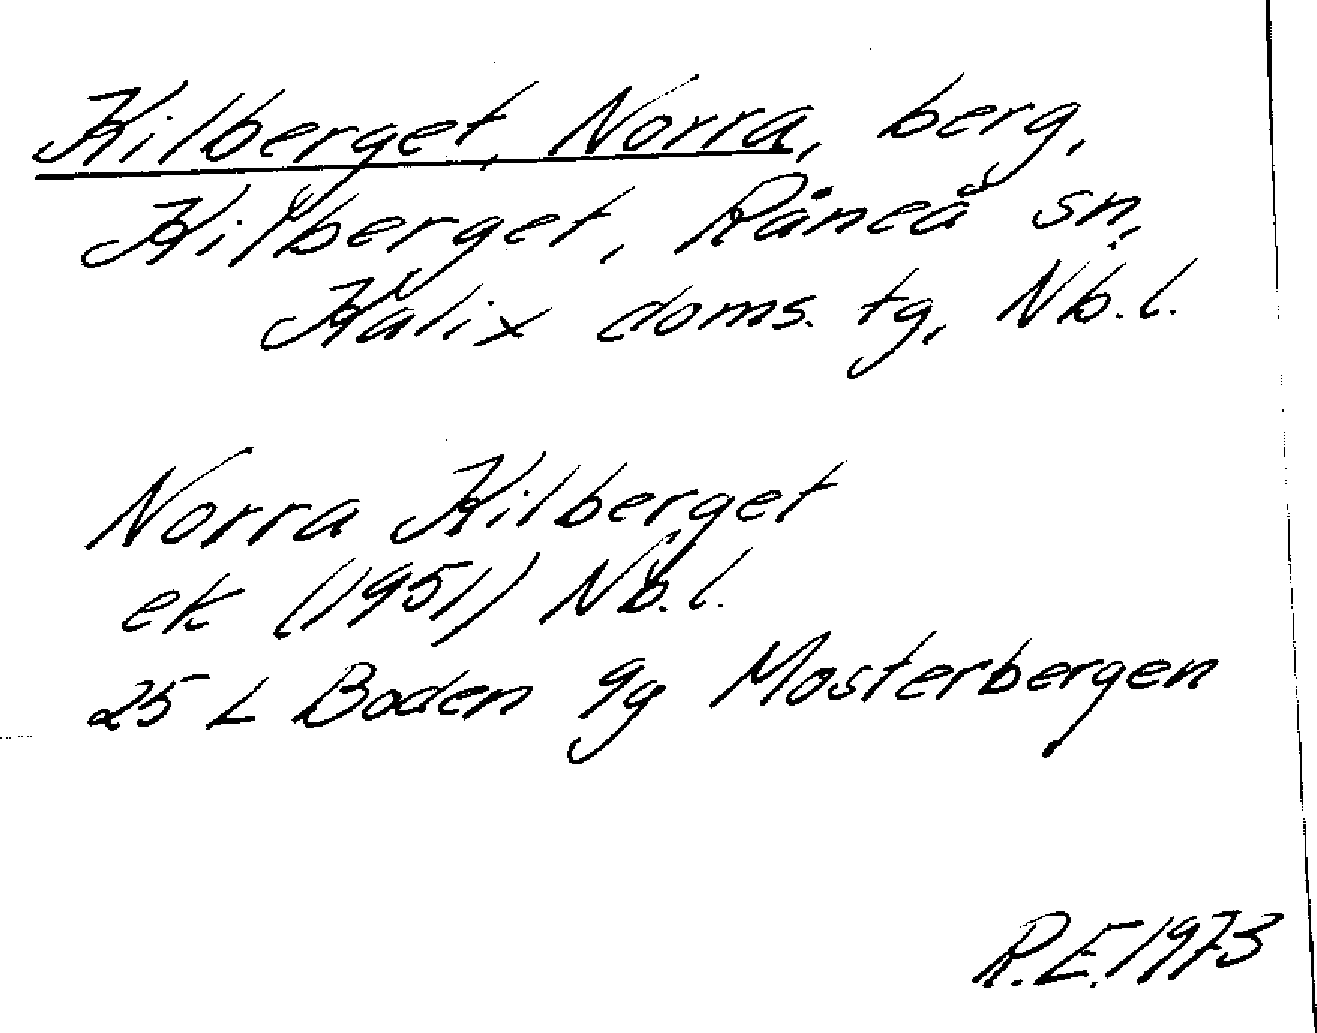 Kilberget, Norra, berg,
Kilberget, Råneå sn,
Kalix doms. tg, Nb.l.
Norra Kilberget
ek (1951) Nb.l.
25 L Boden 9g Mosterbergen
R.E. 1973